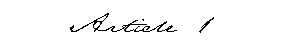 Article 1